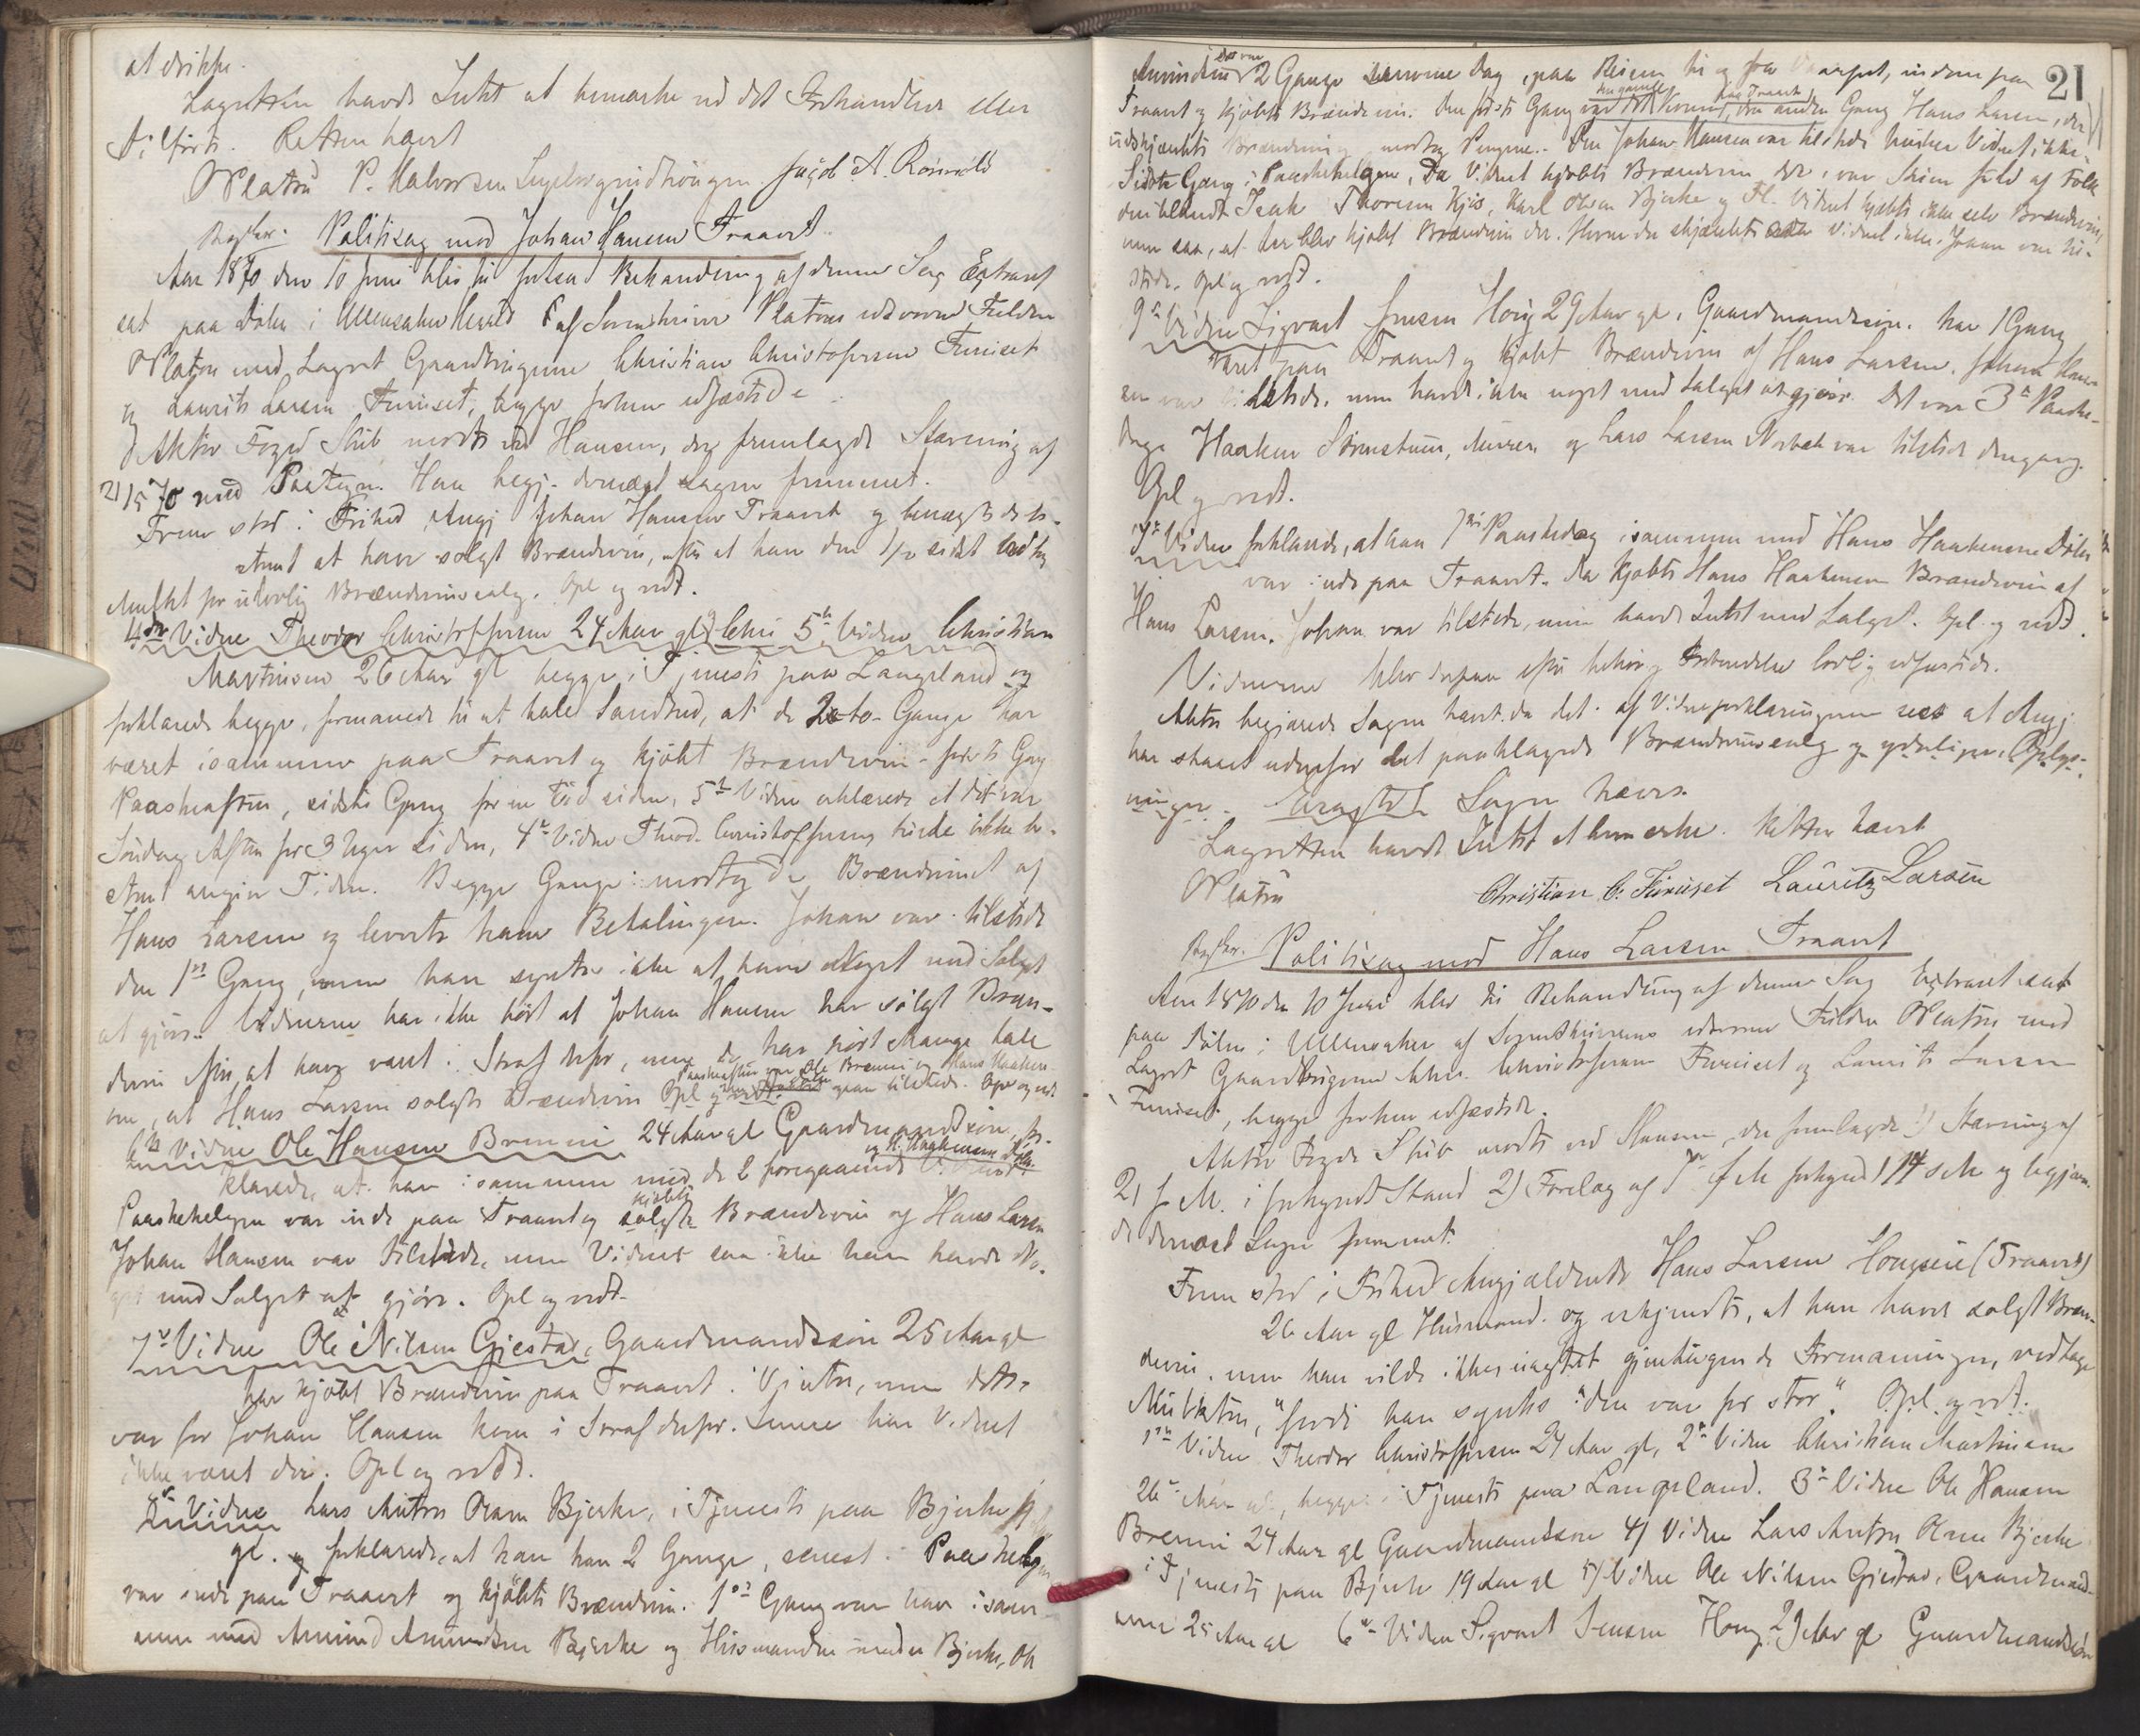 at drikke.
Lagretten havde Intet at bemærke ved det Forhandlede eller
Tilførte. Retten hævet
O Platou P. Halvorsen Jagob A.
Politisag mod Johan Hansen Traavet.
Aar 1870 den 10 Juni blev til fortsat Behandling af denne Sag Extraret
sat paa Dølen i Ullensaker Herred af Sorenskriver Platous edsvorne Fuldm
O Platou med Lagret Gaardbrugerne Christian Christofersen Furuset
og Laurits Larsen Furuset, begge forhen edfæstede
Aktor Foged Stub mødte ved Hansen, der fremlagde Stævning af
21/5 70 med Paategn. Han begj. dernæst Sagen fremmet.
Frem stod i Frihed Angj Johan Hansen Traavet og benægtede be-
stemt at have solgt Brændevin, efter at han den sidst vedtog
Mulkt for ulovlig Brændevinssalg. Opl og vedt.
4de Vidne Theodor Christoffersen 24 Aar gl og 5te Vidne Christian
Martinsen 26 Aar gl begge i Tjeneste paa Langeland og
forklarede begge, formanede til at tale Sandhed, at de to Gange har
været isammen paa Traavet og kjøbt Brændevin - første Gang
Paaskeaften, sidste Gang for en Tid siden, 5te Vidne erklærede at det var
Søndag Aften for 3 Uger siden, 4de Vidne Theod. Christoffersen turde ikke be-
stemt angive Tiden. Begge Gange modtog de Brændevinet af
Hans Larsen og leverte ham Betalingen. Johan var tilstede
den 1ste Gang, men han syntes ikke at have Noget med Salget
at gjøre. Vidnerne har ikke hørt at Johan Hansen har solgt Bræn-
devin efter at have været i Straf derfor, men de har hørt Mange tale
Paaskeaften var Ole Brenni og Hans Haaken-
om, at Hans Larsen solgte Brændevin Opl og vedt. tilstede. Opl og vedt
6te Vidne Ole Hansen Brenni 24 Aar gl Gaardmandssøn, for-
og H. Haakensen Dølen
klarede, at han isammen med de 2 foregaaende Vidner
kjøbte
Paaskehelgen var inde paa Traavet og solgte Brændevin af Hans Larsen
Johan Hansen var tilstede, men Vidnet saa ikke han havde No-
get med Salget at gjøre. Opl og vedt.
7de Vidne Ole Nilsen Gjestad, Gaardmandssøn 25 Aar gl
har kjøbt Brændevin paa Traavet i Vinter, men dette
var før Johan Hansen kom i Straf derfor. Senere har Vidnet
ikke været der. Opl og vedt.
Vidne Lars Anton Olsen Bjerke, i Tjeneste paa Bjerke
gl. og forklarede, at han han 2 Gange, senest i Paaskehelgen
var inde paa Traavet og kjøbte Brændevin. 1ste Gang var han isam-
men med Amund Amundsen Bjerke og Husmanden under Bjerke, Ole
21
Det var
Amundsen 2 Gange samme Dag, paa Reisen til og fra
Traavet og kjøbte Brændevin. Den første Gang den anden Gang Hans Larsen, der
udskjænkte Brændevin og modtog Pengene. Om Johan Hansen var tilstede husker Vidnet ikke.
Sidste Gang i Paaskehelgen, Da Vidnet kjøbte Brændevin der, var Stuen fuld af Folk
deriblandt Isak Thoresen Kjos, Karl Olsen Bjerke og Fl. Vidnet kjøbte ikke selv Brændevin,
men saa, at der blev kjøbt Brændevin der. Hvem der skjænkte Vidnet ikke. Johan var til-
stede. Opl og vedt.
9de Vidne Sigvart Jensen Houg 29 Aar gl, Gaardmandssøn. har 1 Gang
været paa Traavet og kjøbt Brændevin af Hans Larsen. Johan Han-
sen var tilstede, men havde ikke noget med Salget at gjøre. Det var 3die Paaske-
dag. Haaken Murer, og Lars Larsen Norbek var tilstede dengang.
Opl og vedt.
7de Vidne forklarede, at han 1ste Paaskedag isammen med Hans Haakensen Dølen
var inde paa Traavet. Da kjøbte Hans Haakensen Brændevin af
Hans Larsen. Johan var tilstede, men havde Intet med Salget. Opl og vedt.
Vidnerne blev derpaa efter behørig Forberedelse lovlig edfæstede.
Aktor begjærede Sagen hævet, da det af Vidneforklaringerne sees at Angj
har staaet udenfor det paaklagede Brændevinssalg og yderligere Oplys-
ninger. Sagen hæves.
Lagretten havde Intet at bemærke. Retten hævet
O Platou Christian C. Furuset Lauritz Larsen
Politisag mod Hans Larsen Traavet
Aar 1870 den 10 Juni blev til Behandling af denne Sag Extraret sat
paa Dølen i Ullensaker af Sorenskriverens edsvorne Fuldm O Platou med
Lagret Gaardbrugerne Chr. Christofersen Furuset og Laurits Larsen
Furuset, begge forhen edfæstede.
Aktor Foged Stub mødte ved Hansen der fremlagde 1) Stævning af
21 f M. i forkyndt Stand 2) Forelæg af f M forkyndt 14 s M og begjæ-
de dernæst Sagen fremmet.
Frem stod i Frihed Angjældende Hans Larsen (Traavet)
26 Aar gl Husmand. og erkjendte, at han havde solgt Bræn-
devin, men han vilde ikke uagtet gjentagende Formaninger, vedtage
Mulkten, "fordi han syntes "den var for stor". Opl og vedt.
1ste Vidne Theodor Christoffersen 24 Aar gl, 2det Vidne Christian Martinsen
26 Aar gl, begge i Tjeneste paa Langeland. 3die Vidne Ole Hansen
Brenni 24 Aar gl Gaardmandssøn 4) Vidne Lars Anton Olsen Bjerke
i Tjeneste paa Bjerke 19 Aar gl 5) Vidne Ole Nilsen Gjestad, Gaardmands-
søn 25 Aar gl 6te Vidne Sigvart Jensen Houg 29 Aar gl Gaardmandssøn